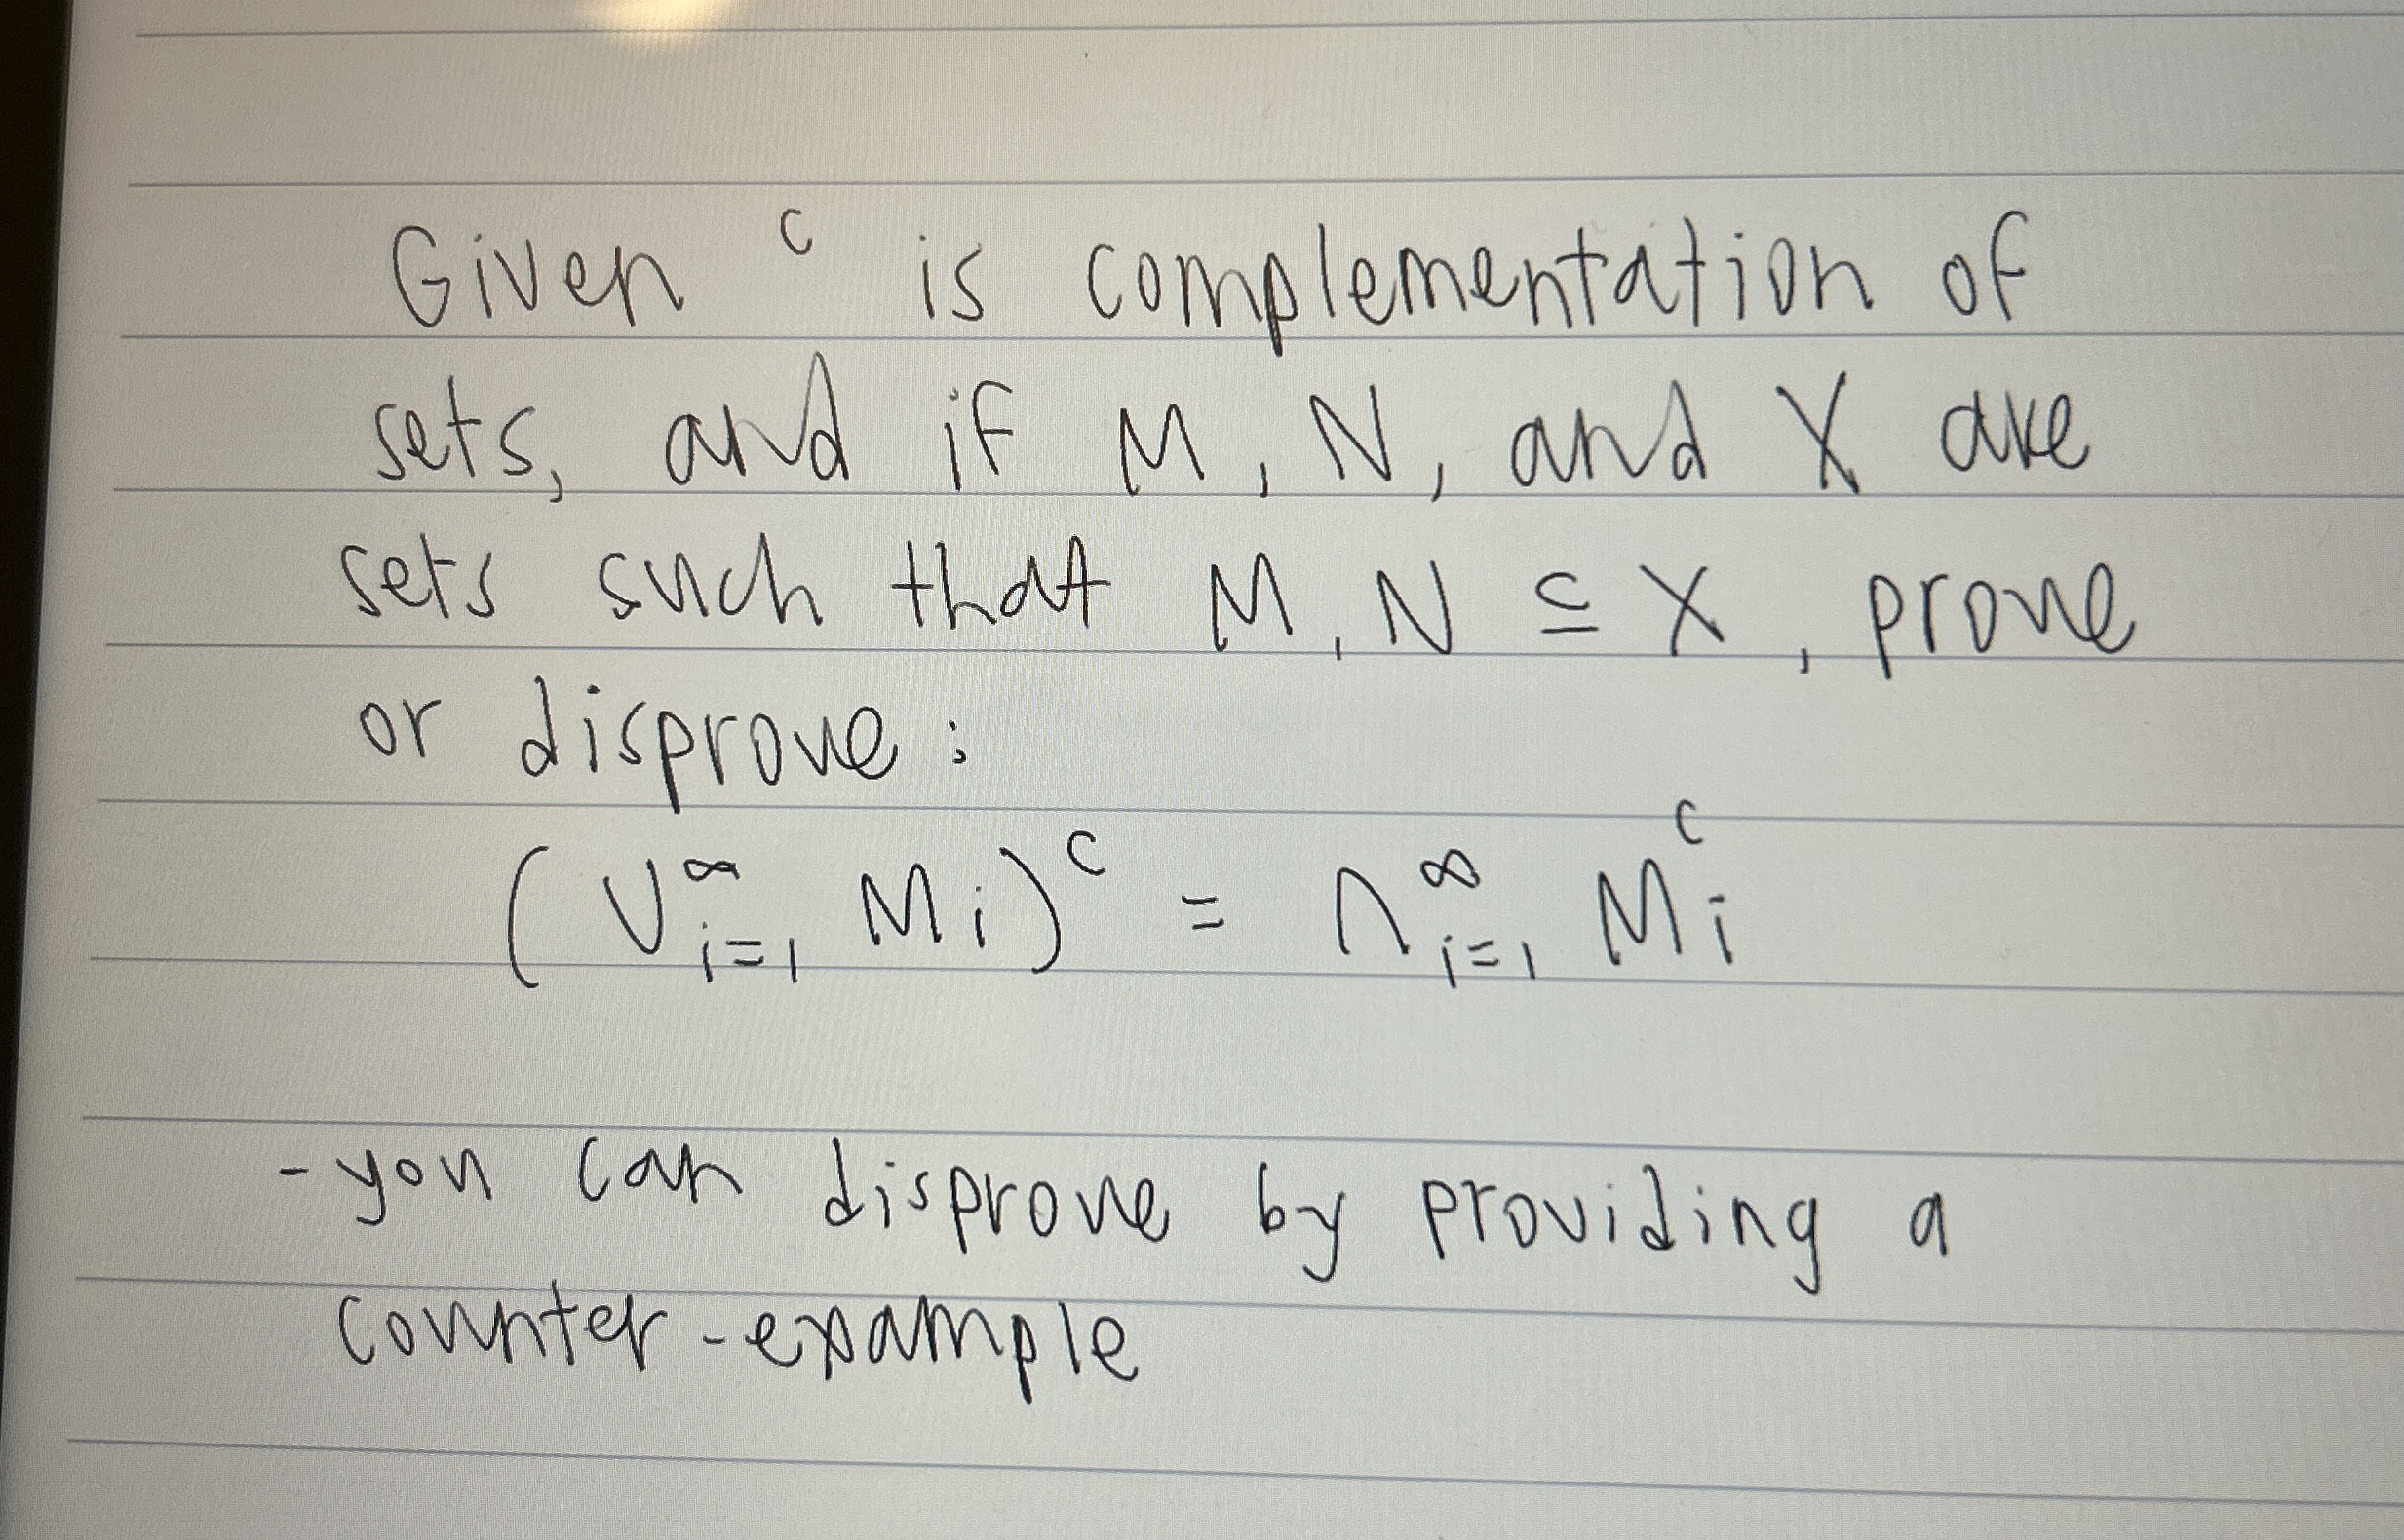 Given ᶜ is complementation of
sets, and if M, N, and X are
sets such that M, N ⊆ X, prove
or disprove:
(∪^∞_{i=1} M_i)^c = ∩^∞_{i=1} M_i^c
- you can disprove by providing a
counter-example